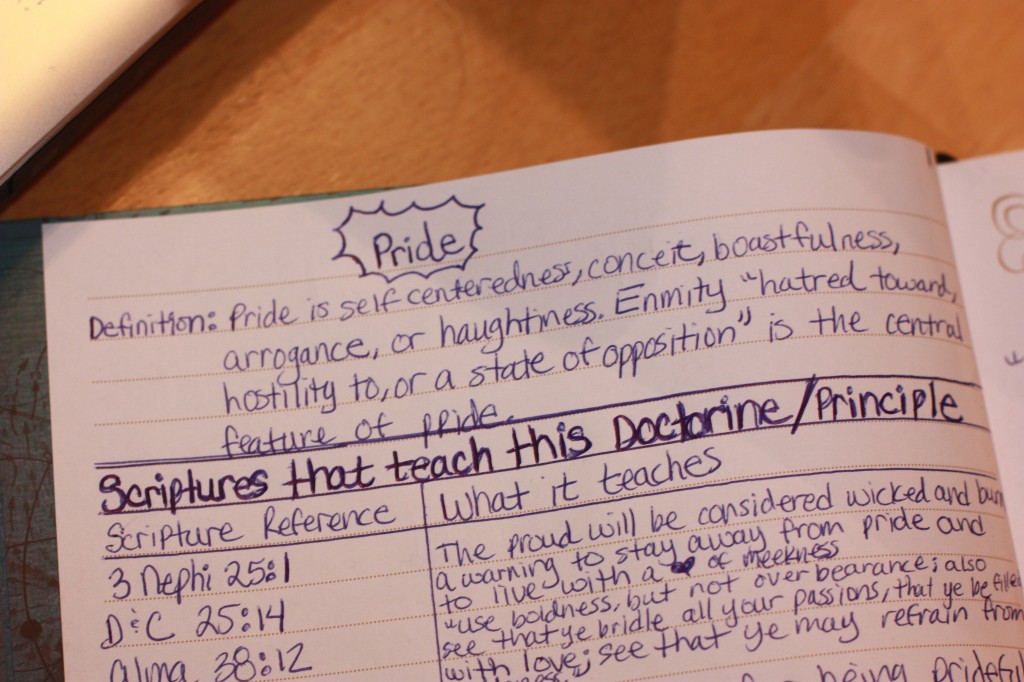 Pride
Definition: Pride is self centeredness, conceit, boastfulness,
arrogance, or haughtiness. Enmity "hatred toward,
hostility to, or a state of opposition" is the central
feature of ppride.
Scriptures that teach this Doctorine/Principle
Scripture Reference What it teaches
3 Nephi 25:1 The proud will be considered wicked and burn
D&C 25:14 a warning to stay away from pride and
to live with a of meekness
Alma 38:12 "use boldness, but not over bearance; also
see that ye bridle all your passions, that ye be filled
with love; see that ye may refrain from
being prideful